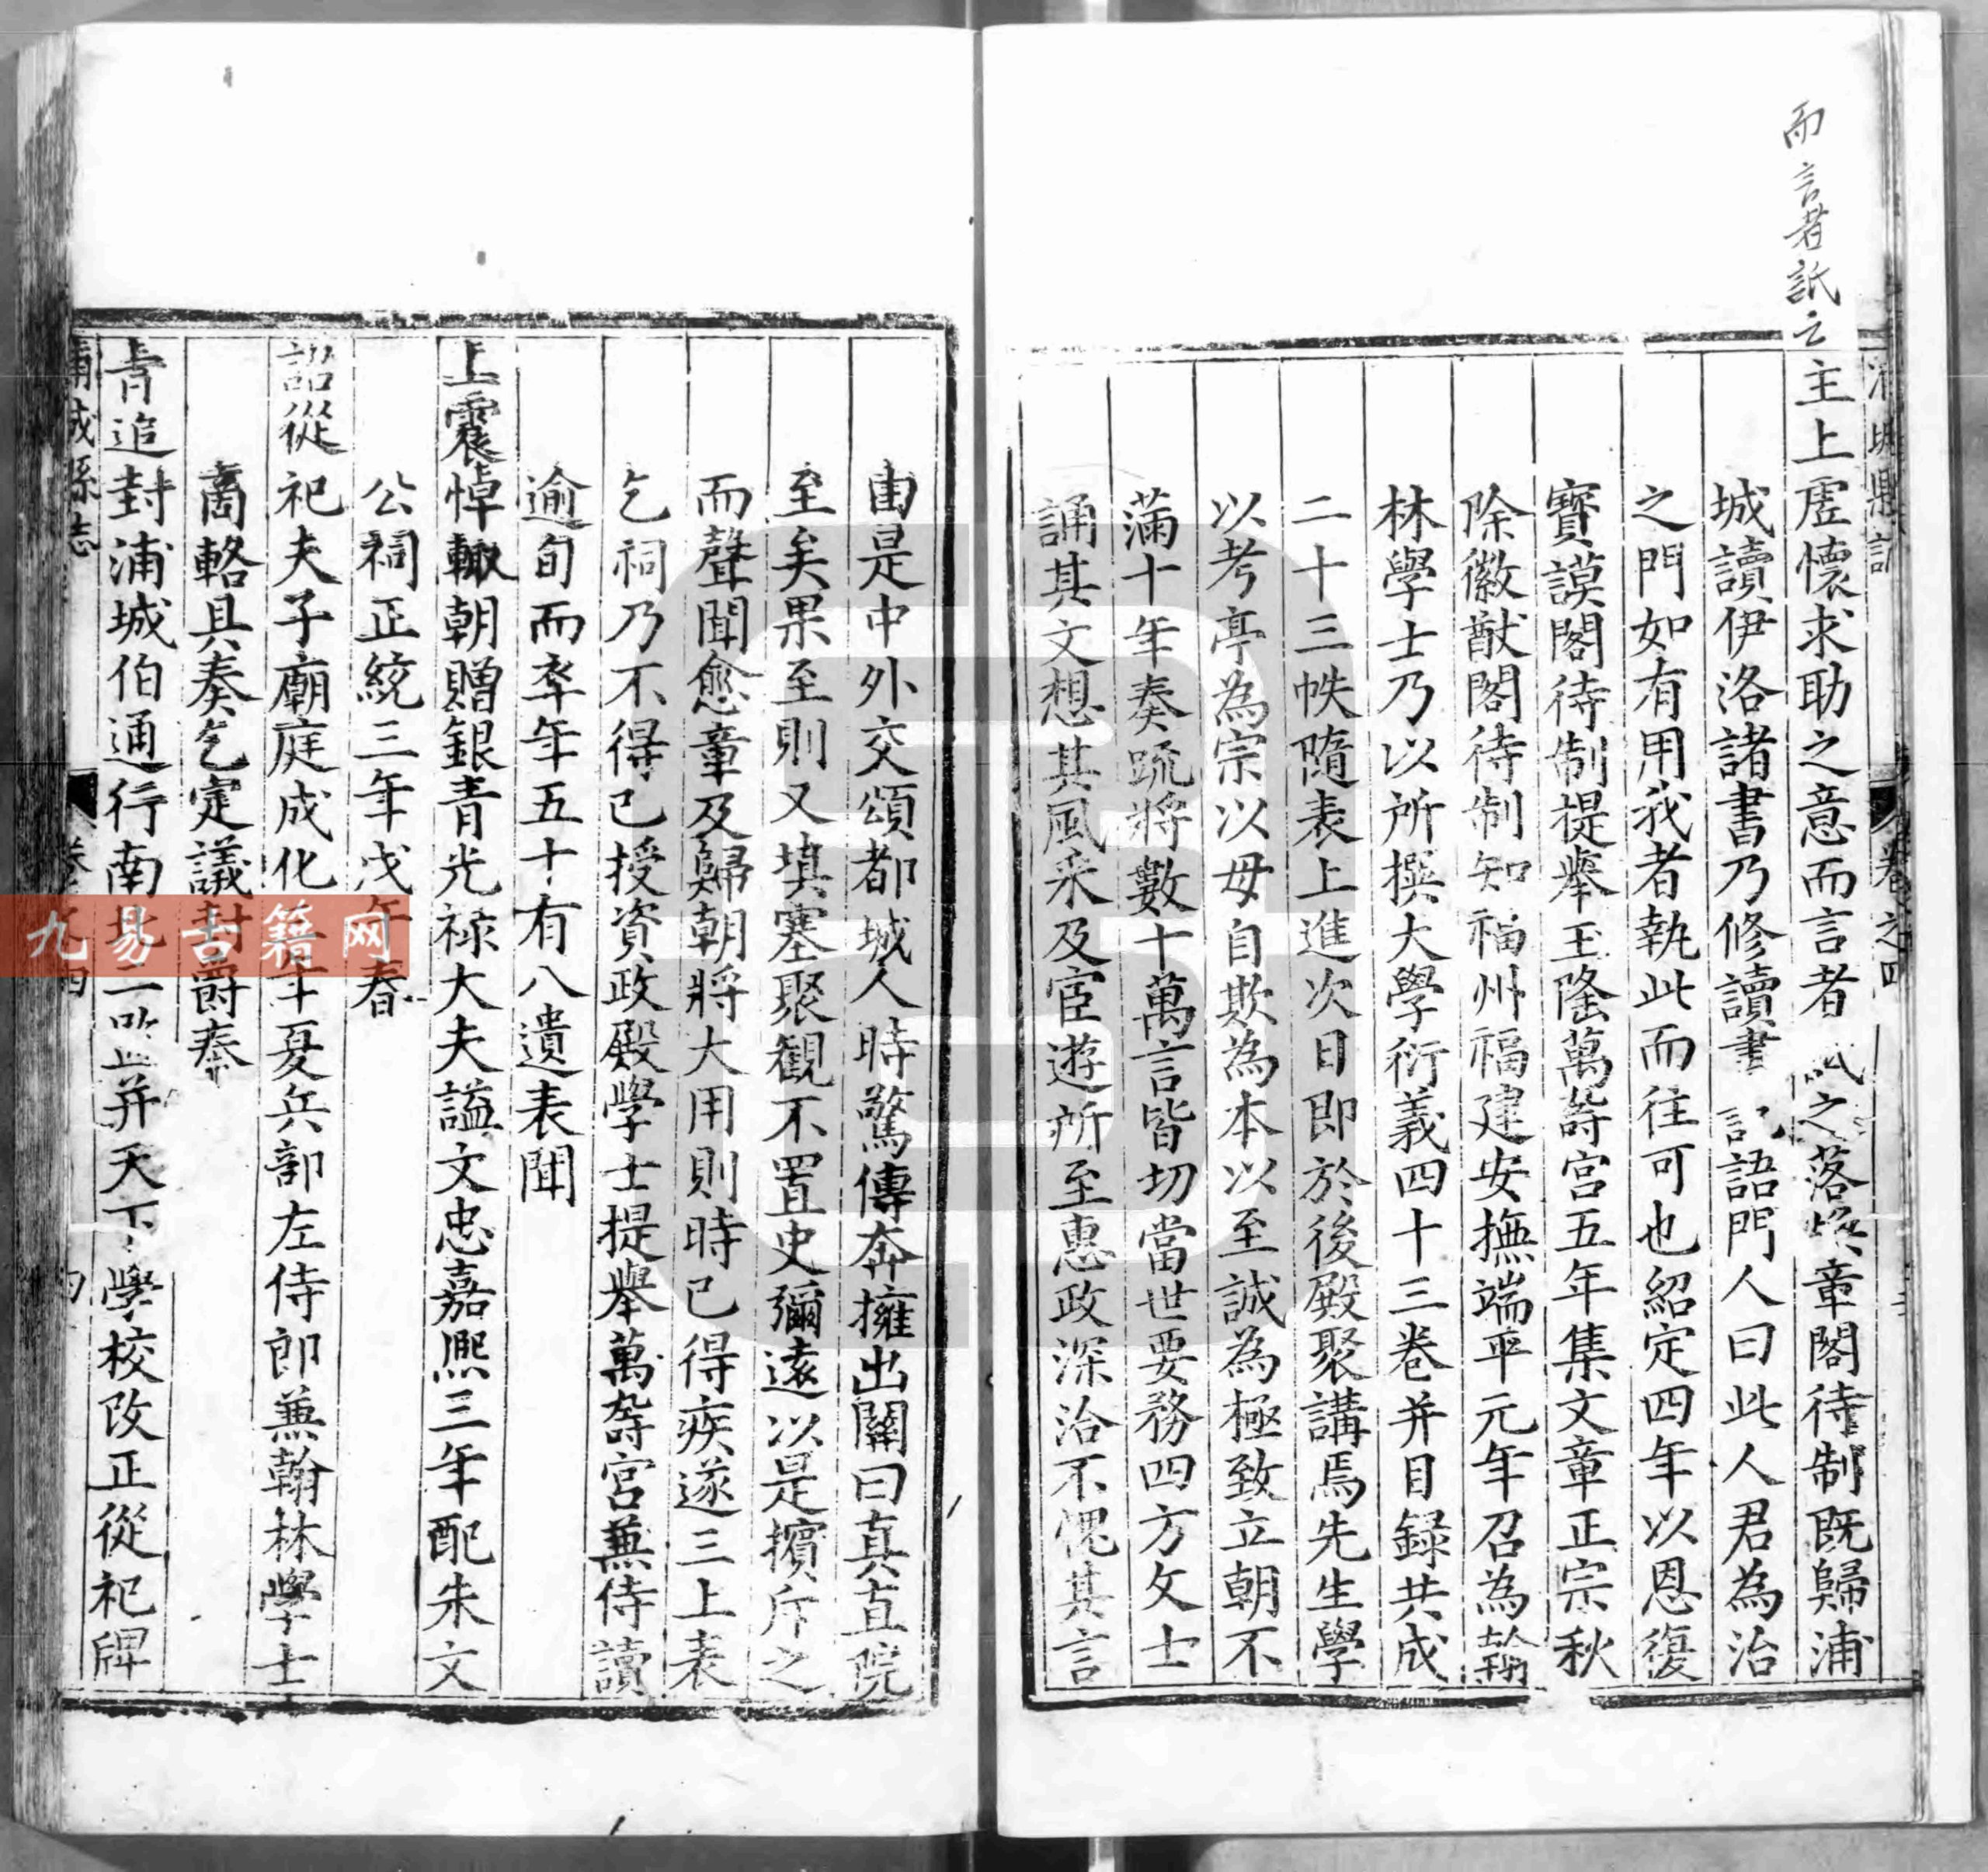 而言者詆之
主上虛懷求助之意而言者之落章閣待制既歸浦
城讀伊洛諸書乃修讀書記語門人曰此人君為治
之門如有用我者執此而往可也紹定四年以恩復
寶謨閣待制提舉玉隆萬壽宮五年集文章正宗秋
除徽猷閣待制知福州福建安撫端平元年召為翰
林學士乃以所撰大學衍義四十三卷并目録共成
二十三帙隨表上進次日即於後殿聚講焉先生學
以考亭為宗以毋自欺為本以至誠為極致立朝不
滿十年奏疏將數十萬言皆切當世要務四方文士
誦其文想其風采及宦遊所至惠政深洽不愧其言
由是中外交頌都城人時驚傳奔擁出關曰真直院
至矣果至則又填塞聚觀不置史彌遠以是擯斥之
而聲聞愈章及歸朝將大用則時已得疾遂三上表
乞祠乃不得已授資政殿學士提舉萬壽宮兼侍讀
逾旬而卒年五十有八遺表聞
上震悼輟朝贈銀青光禄大夫謚文忠嘉熙三年配朱文
公祠正統三年戊午春
詔從祀夫子廟庭成化年夏兵部左侍郎兼翰林學士
商輅具奏乞定議封爵奉
旨追封浦城伯通行南北二并天下學校改正從祀牌
浦城縣志
卷之四
九易古籍网